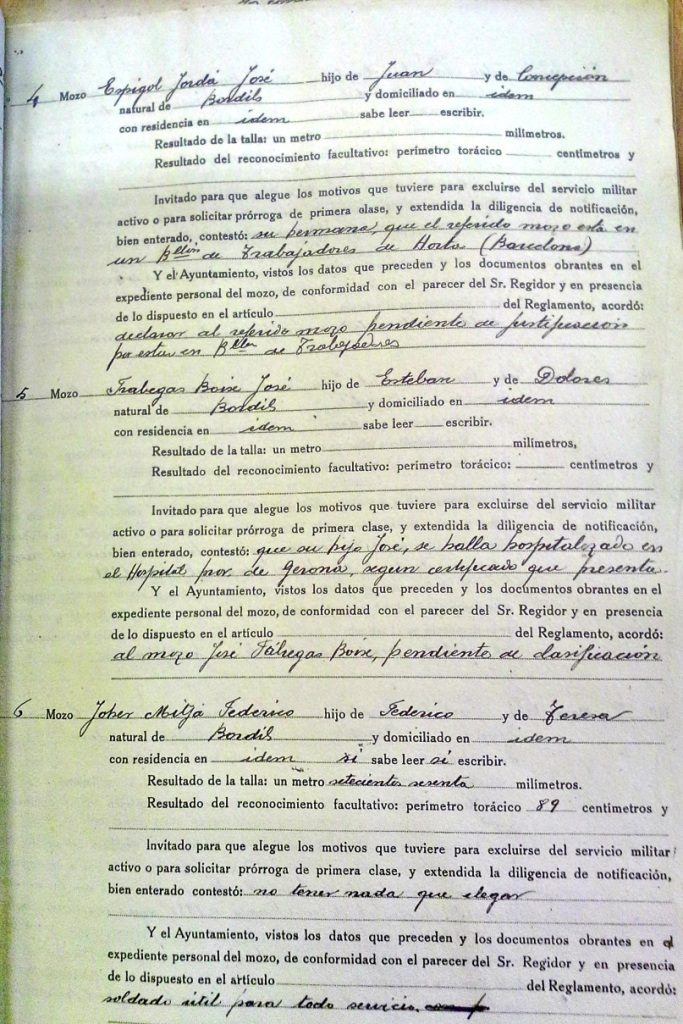 4 Mozo Espigol Jordá José hijo de Juan y de Concepción
natural de Bordils y domiciliado en idem
con residencia en idem sabe leer escribir.
Resultado de la talla: un metro milímetros.
Resultado del reconocimiento facultativo: perímetro torácico centímetros y
Invitado para que alegue los motivos que tuviere para excluirse del servicio militar
activo o para solicitar prórroga de primera clase, y extendida la diligencia de notificación,
bien enterado, contestó: su permane, que el referido mozo está en
un Bllón de Trabajadores de Horta (Barcelona)
Y el Ayuntamiento, vistos los datos que preceden y los documentos obrantes en el
expediente personal del mozo, de conformidad con el parecer del Sr. Regidor y en presencia
de lo dispuesto en el artículo del Reglamento, acordó:
declarar al referido mozo pendiente de justificación
por estar en Bllon de Trabajadores
5 Mozo Frabegas Boix José hijo de Esteban y de Dolores
natural de Bordils y domiciliado en idem
con residencia en idem sabe leer escribir.
Resultado de la talla: un metro milímetros,
Resultado del reconocimiento facultativo: perímetro torácico: centímetros y
Invitado para que alegue los motivos que tuviere para excluirse del servicio militar
activo o para solicitar prórroga de primera clase, y extendida la diligencia de notificación,
bien enterado, contestó: que su hijo José, se halla hospitalizado en
el Hospital prov. de Gerona, segun certificado que presenta.
Y el Ayuntamiento, vistos los datos que preceden y los documentos obrantes en el
expediente personal del mozo, de conformidad con el parecer del Sr. Regidor y en presencia
de lo dispuesto en el artículo del Reglamento, acordó:
al mozo José Fábregas Boix, pendiente de clasificación
6 Mozo Joher Mitjá Federico hijo de Federico y de Teresa
natural de Bordils y domiciliado en idem
con residencia en idem si sabe leer si escribir.
Resultado de la talla: un metro setecientos sesenta milímetros.
Resultado del reconocimiento facultativo: perímetro torácico 89 centímetros y
Invitado para que alegue los motivos que tuviere para excluirse del servicio militar
activo o para solicitar prórroga de primera clase, y extendida la diligencia de notificación,
bien enterado contestó: no tener nada que alegar
Y el Ayuntamiento, vistos los datos que preceden y los documentos obrantes en el
expediente personal del mozo, de conformidad con el parecer del Sr. Regidor y en presencia
de lo dispuesto en el artículo del Reglamento, acordó:
soldado útil para todo servicio,